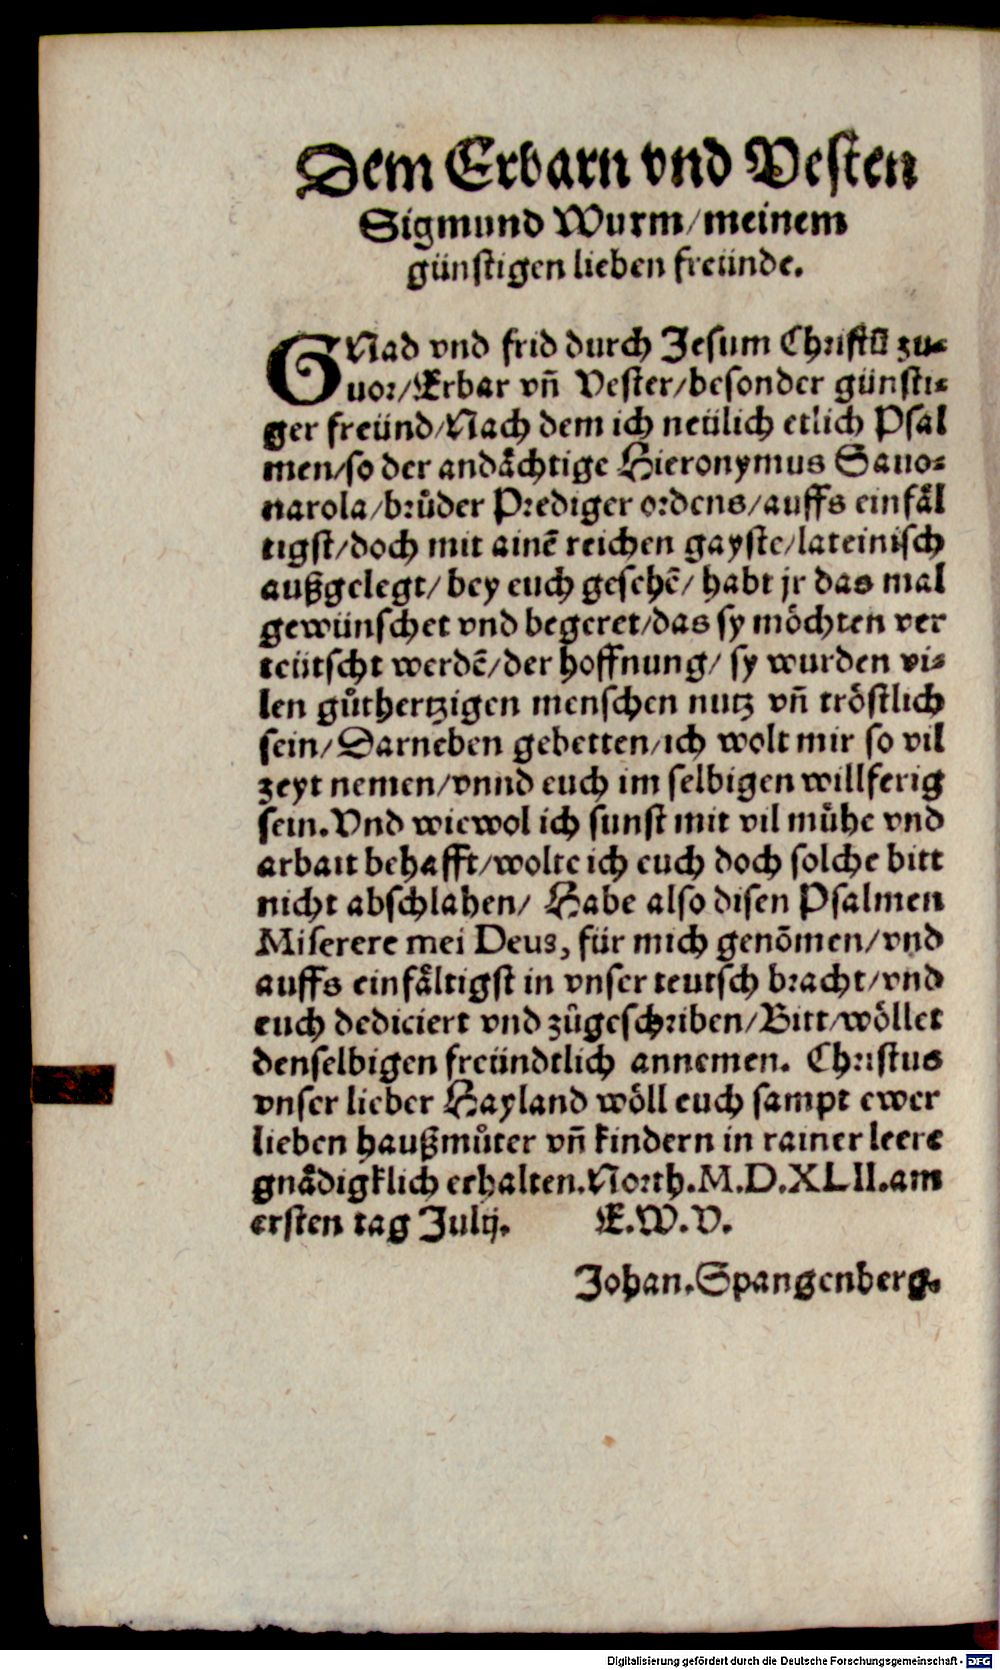 Dem Erbarn vnd Vesten
Sigmund Wurm/meinem
günstigen lieben freünde.
GNad vnd frid durch Jesum Christū zu-
uor/Erbar vñ Vester/besonder günsti-
ger freünd/Nach dem ich neülich etlich Psal
men/so der andåchtige Hieronymus Sauo-
narola/brůder Prediger ordens/auffs einfål
tigst/doch mit ainē reichen gayste/lateinisch
außgelegt/bey euch gesehē/habt jr das mal
gewünschet vnd begeret/das sy möchten ver
teütscht werdē/der hoffnung/sy wurden vi-
len gůthertzigen menschen nutz vñ tröstlich
sein/Darneben gebetten/ich wolt mir so vil
zeyt nemen/vnnd euch im selbigen willferig
sein. Vnd wiewol ich sunst mit vil můhe vnd
arbait behafft/wolte ich euch doch solche bitt
nicht abschlahen/ Habe also disen Psalmen
Miserere mei Deus, für mich genōmen/vnd
auffs einfåltigst in vnser teutsch bracht/vnd
euch dediciert vnd zůgeschriben/Bitt/wöllet
denselbigen freündtlich annemen. Christus
vnser lieber Hayland wöll euch sampt ewer
lieben haußmůter vñ kindern in rainer leere
gnådigklich erhalten. North. M.D.XLII. am
ersten tag Julij. E.W.V.
Johan. Spangenberg.
Digitalisierung gefördert durch die Deutsche Forschungsgemeinschaft - DFG